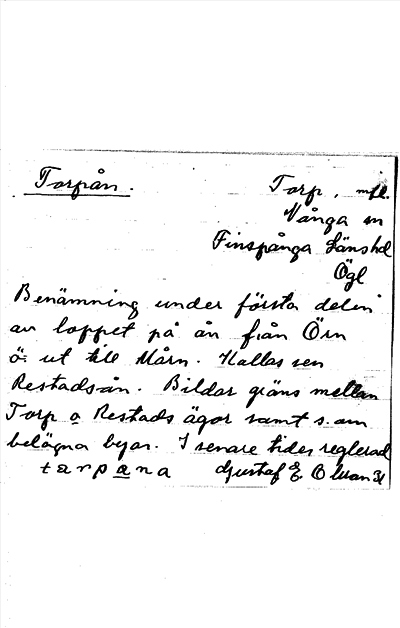 Torpån. Torp, mfl.
Vånga sn
Finspånga Länshd
Ögl
Benämning under första delen
av loppet på ån från Örn
ö. ut till Mårn. Kallas sen
Restadsån. Bildar gräns mellan
Torp o Restads ägor samt s. om
belägna byar. I senare tider reglerad
tarpana Gustaf E. Olsson 31